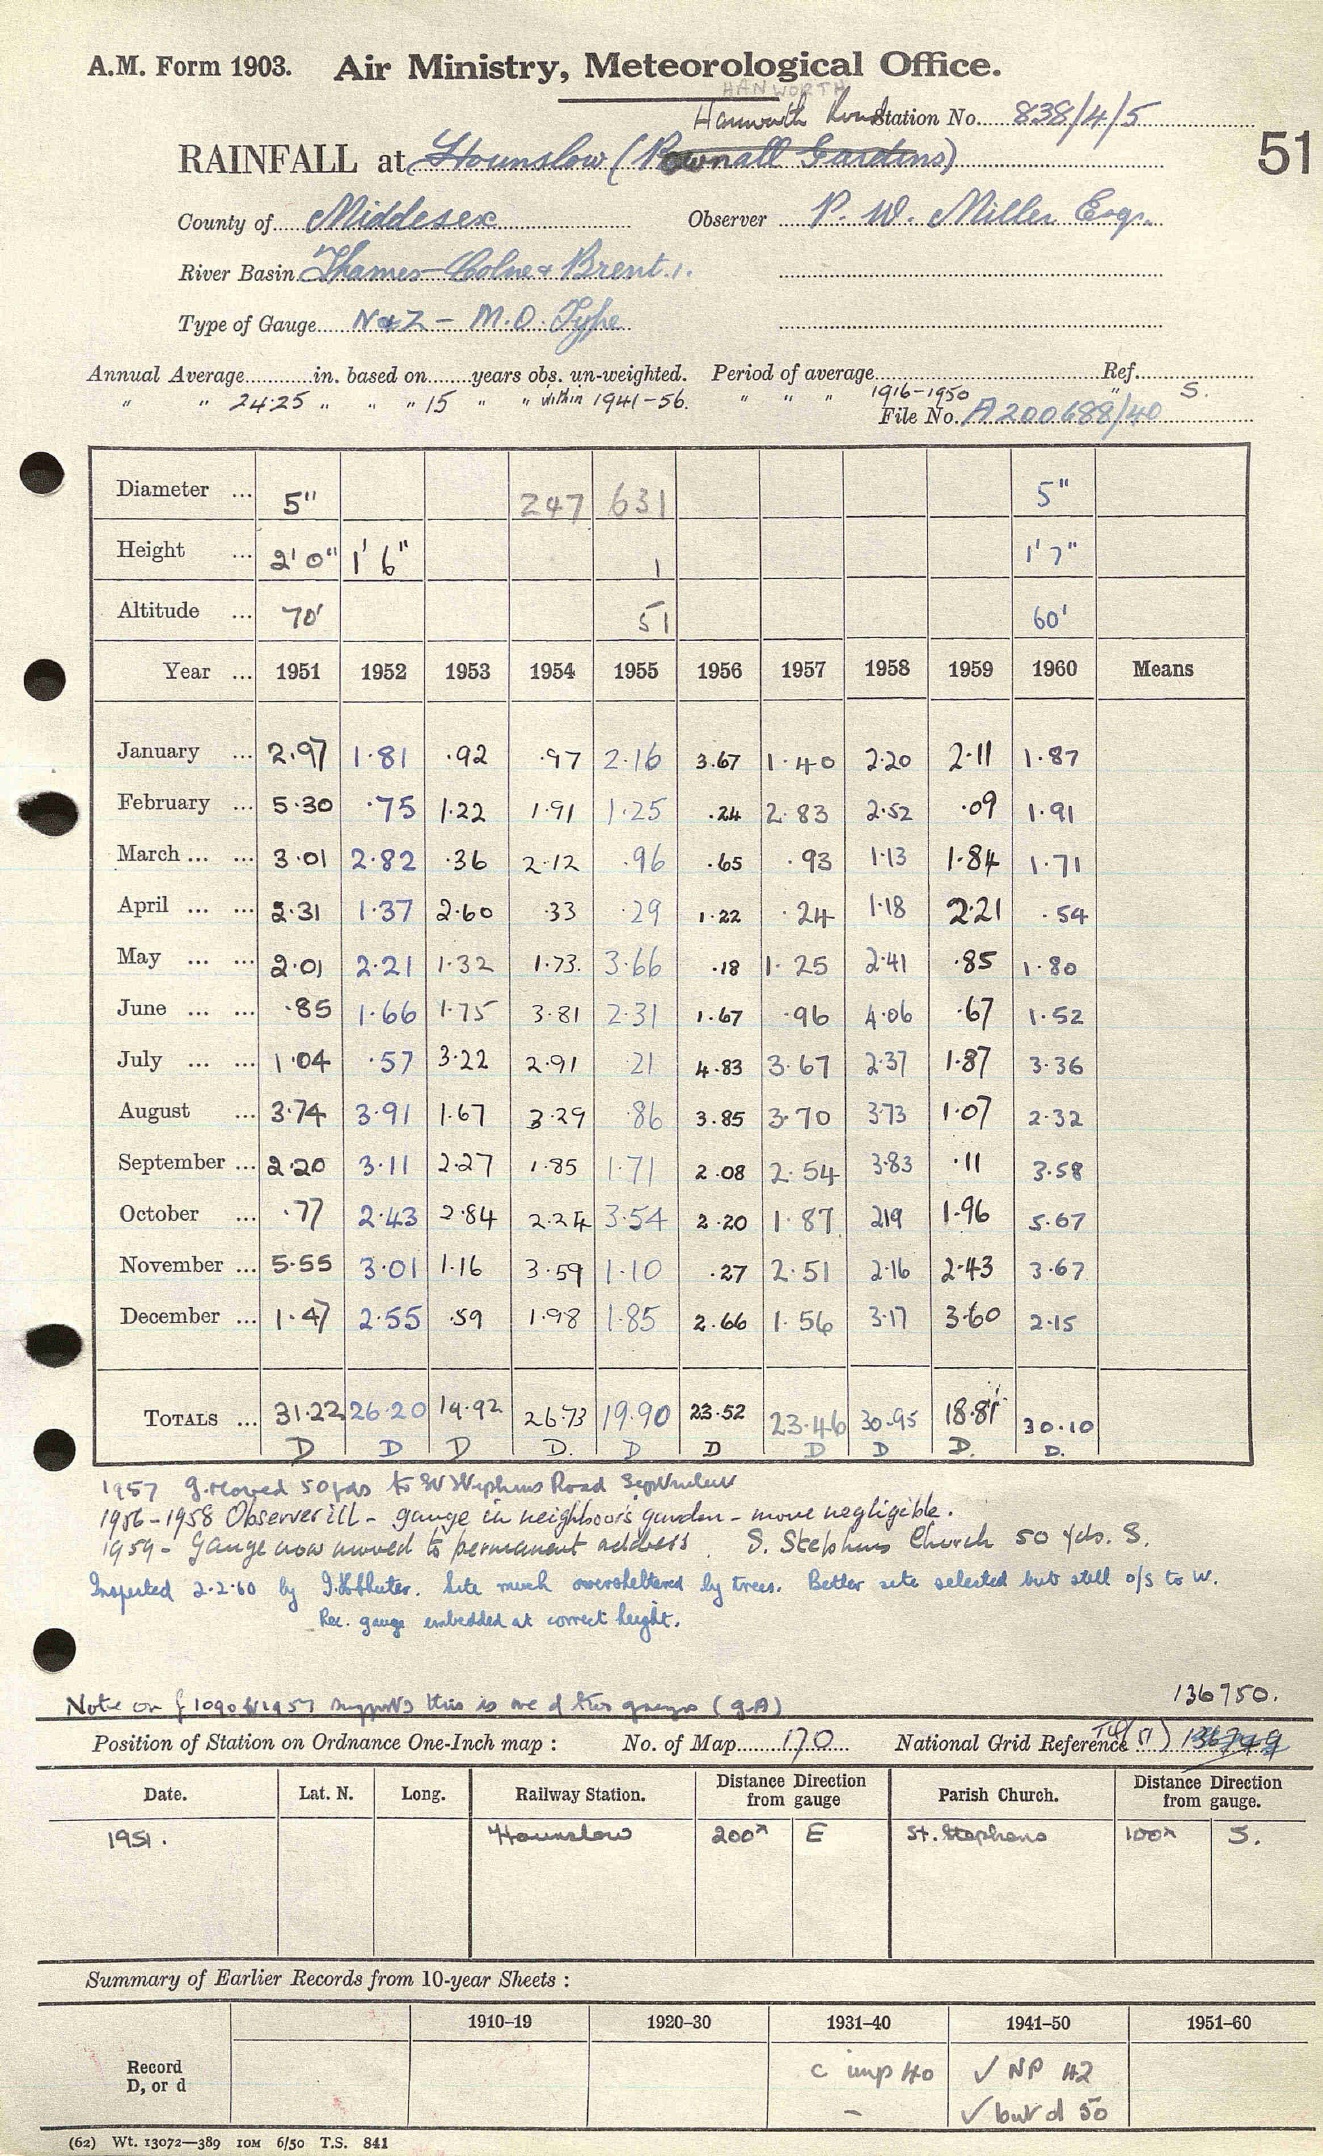 A.M. Form 1903. Air Ministry, Meteorological Office.
HANWORTH
Hanworth Road Station No. 838/4/5
51
RAINFALL at Hounslow (Pownall Gardens)
County of Middesex Observer P. W. Miller Esq.
River Basin Thames - Colne & Brent
Type of Gauge N & Z - M.O. Type
Annual Average in. based on years obs. un-weighted. Period of average Ref.
" " 24.25 " " " 15 " " within 1941-56. " " " 1916-1950 " S.
File No. A200688/40
Diameter ... 5" 247 631 5"
Height ... 2'0" 1'6" 1 1'7"
Altitude ... 70' 51 60'
Year ... 1951 1952 1953 1954 1955 1956 1957 1958 1959 1960 Means
January ... 2.97 1.81 .92 .97 2.16 3.67 1.40 2.20 2.11 1.87
February ... 5.30 .75 1.22 1.91 1.25 .24 2.83 2.52 .09 1.91
March ... ... 3.01 2.82 .36 2.12 .96 .65 .93 1.13 1.84 1.71
April ... ... 2.31 1.37 2.60 .33 .29 1.22 .24 1.18 2.21 .54
May ... ... 2.01 2.21 1.32 1.73. 3.66 .18 1.25 2.41 .85 1.80
June ... ... .85 1.66 1.75 3.81 2.31 1.67 .96 4.06 .67 1.52
July ... ... 1.04 .57 3.22 2.91 .21 4.83 3.67 2.37 1.87 3.36
August ... 3.74 3.91 1.67 3.29 .86 3.85 3.70 3.73 1.07 2.32
September ... 2.20 3.11 2.27 1.85 1.71 2.08 2.54 3.83 .11 3.58
October ... .77 2.43 2.84 2.24 3.54 2.20 1.87 219 1.96 5.67
November ... 5.55 3.01 1.16 3.59 1.10 .27 2.51 2.16 2.43 3.67
December ... 1.47 2.55 .59 1.98 1.85 2.66 1.56 3.17 3.60 2.15
TOTALS ... 31.22 26.20 19.92 26.73 19.90 23.52 23.46 30.95 18.81 30.10
D D D D. D D D D D. D.
1957 g. moved 50yds to St Stephens Road September
1956-1958 Observer ill - gauge in neighbour's garden - move negligible.
1959 - Gauge now moved to permanent address. S. Stephens Church 50 yds. S.
Inspected 2.2.60 by Site much oversheltered by trees. Better site selected but still o/s to W.
Rec. gauge embedded at correct height.
Note on f 1090 1957 suggests this is one of two gauges (g.A)
136750.
Position of Station on Ordnance One-Inch map : No. of Map 170 National Grid Reference
Date. Lat. N. Long. Railway Station. Distance from gauge Direction Parish Church. Distance from gauge. Direction
1951. Hounslow 200x E St. Stephens 100x S.
Summary of Earlier Records from 10-year Sheets :
1910–19 1920–30 1931–40 1941–50 1951–60
Record D, or d
c imp 40 ✓ NP 42
- ✓ but d 50
(62) Wt. 13072—389 10M 6/50 T.S. 841